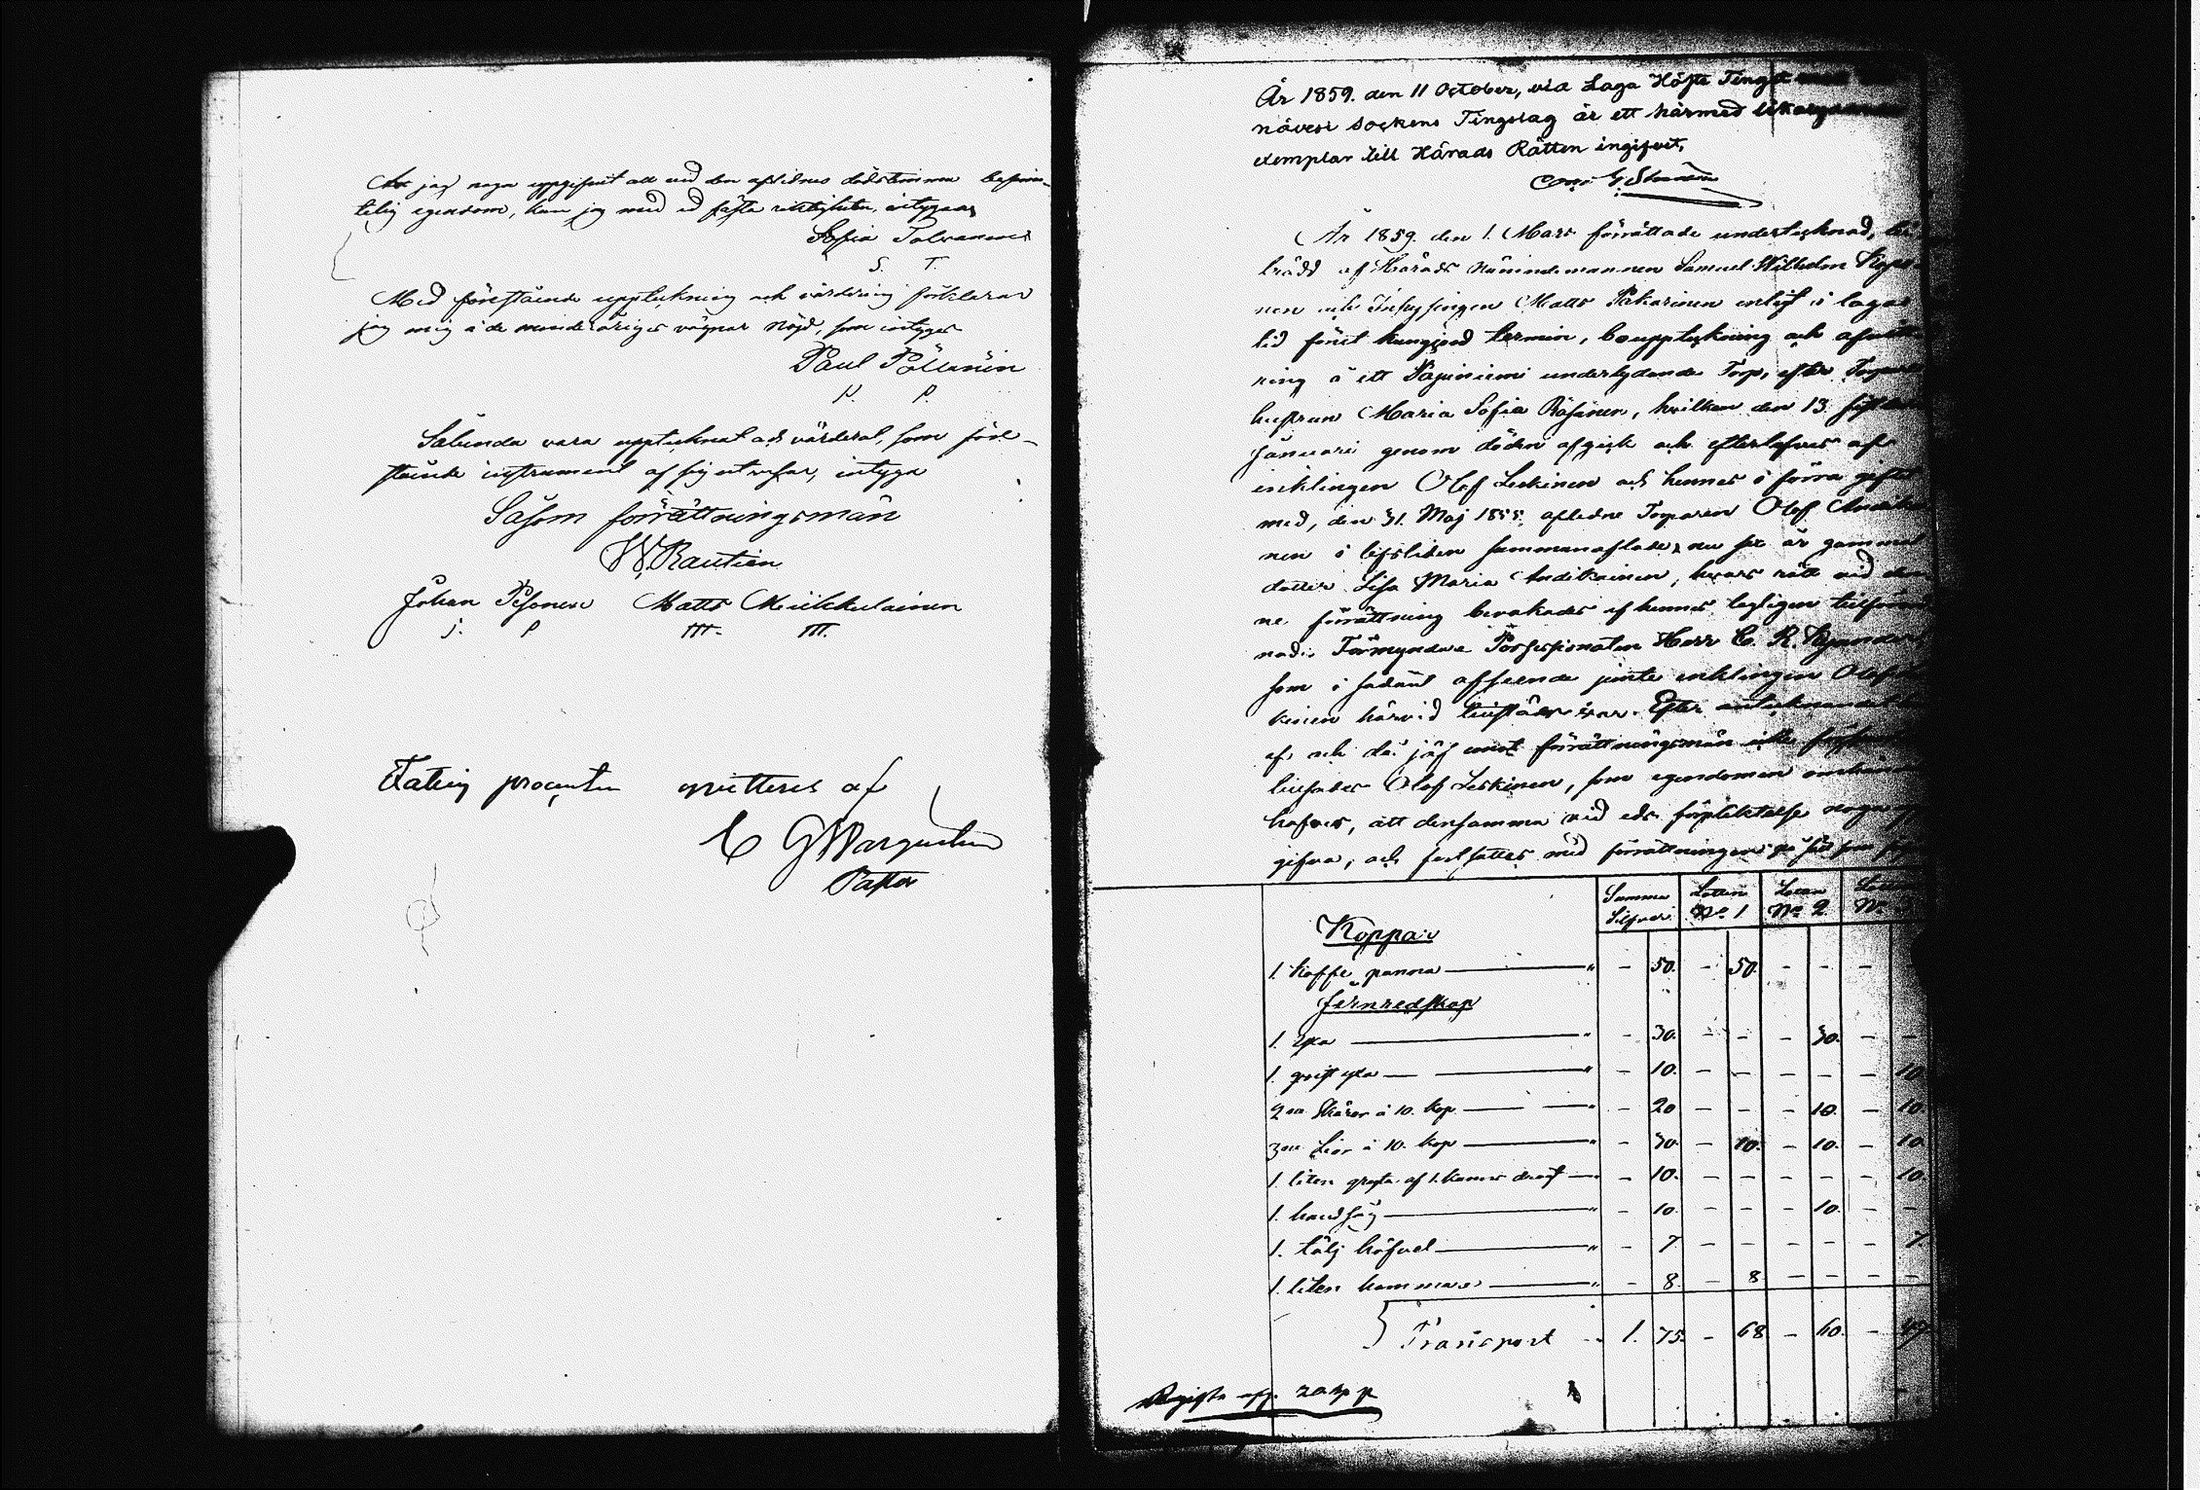 Att jag noga uppgifvit all vid den aflidnes dödstimma befint-
telig egendom, kan jag med ed fästa riktigheten, intygar
Sofia Tolvanen
S. T.
Med förestående uppteckning och värdering förklarar
jag mig å de minderåriges vägnar nöjd, som intyger
Paul Pöllänen
P. P.
Sålunda vara upptecknat och värderat, som före-
stående instrument af sig utvisar, intyga
Såsom förrättningsmän
W. Rautien
Johan Pesonen Matts Miikkulainen
J. P. M. M.
Fattig procenten qvitteras af
C G Wargentin
Pastor
År 1859. den 11 October, vid Laga Höste Tinget
nävesi Sockens Tingslag är ett härmed
exemplar till Härads Rätten ingifvet,
År 1859. den 1. Mars förrättade undertecknad, bi-
trädd af Härads Nämndemannen Samuel Wilhelm
nen och Inhysingen Matts Pakarinen enligt i laga
tid förut kungjord termin, bouppteckning och
ring å ett Papiniemi underlydande Torp, efter
hustrun Maria Sofia Räsänen, hvilken den 13
Januari genom döden afgick och efterlefves af
enklingen Olof Leskinen och hennes i förra giftet
med, den 31. Maj 1855. aflidne Torparen Olof
nen i lifstiden sammanaflade, nu sex år gammal
dotter Lisa Maria Andikainen, hvars rätt vid den-
ne förrättning bevakades af hennes lagligen
nade Förmyndare Possessionaten Herr C. R.
som i sådant afseende jemte enklingen Olof
kinen härvid tillstädes var. Efter
af och då jäf emot förrättningsmän icke
tillsades Olof Leskinen, som egendomen
hafver, att densamma vid eds förpliktelse noga
gifva, och fortsattes med förrättningen på sätt som
Summa Silfver Lotten No 1 Lotten No 2 No
Koppar
1. kaffe panna " - 50. - 50. - - -
Jernredskap
1. yxa " - 30. - - - 30. - -
1. qvist yxa " - 10. - - - - - 10.
2ne Skäror à 10. kop " - 20 - - - 10. - 10.
3ne Liar à 10. kop " - 30. - 10. - 10. - 10.
1. liten gryta af 1. kannas dräkt - 10. - - - - - 10.
1. handsåg " - 10. - - - 10. - -
1. tälj höfvel " - 7. - - - - - 7.
1. liten hammare " - 8. - 8 - - - -
Transport 1. 75. - 68 - 60. - 47